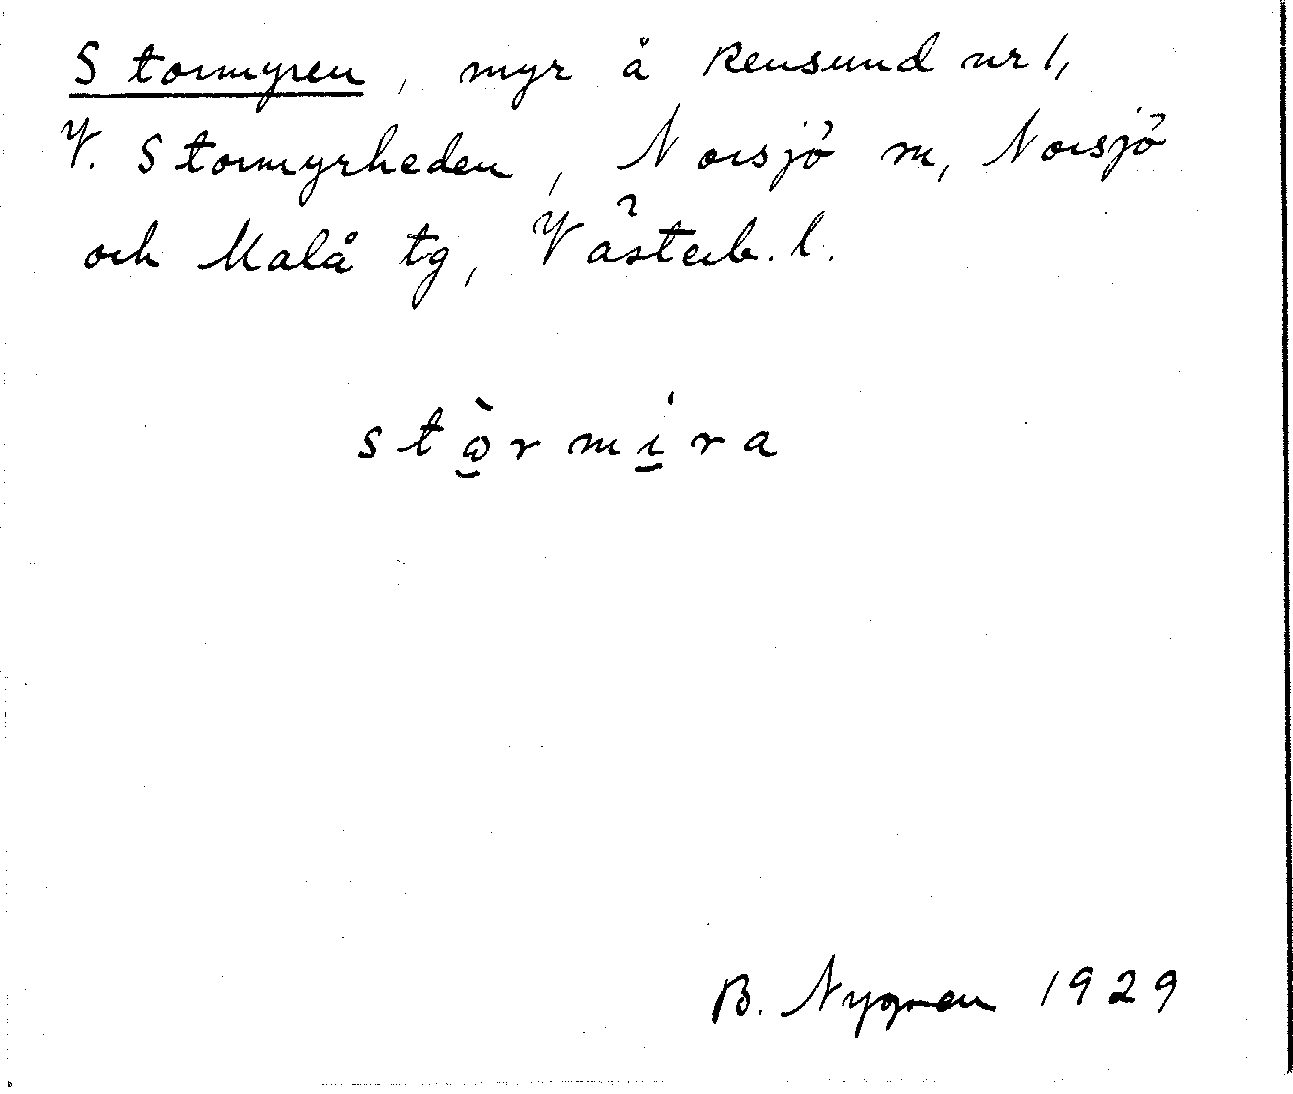 Stormyren, myr å Rensund nr 1,
V. Stormyrheden, Norsjö sn, Norsjö
och Malå tg, Västerb. l.
stὼ̠rmi̠ra
B. Nygren 1929